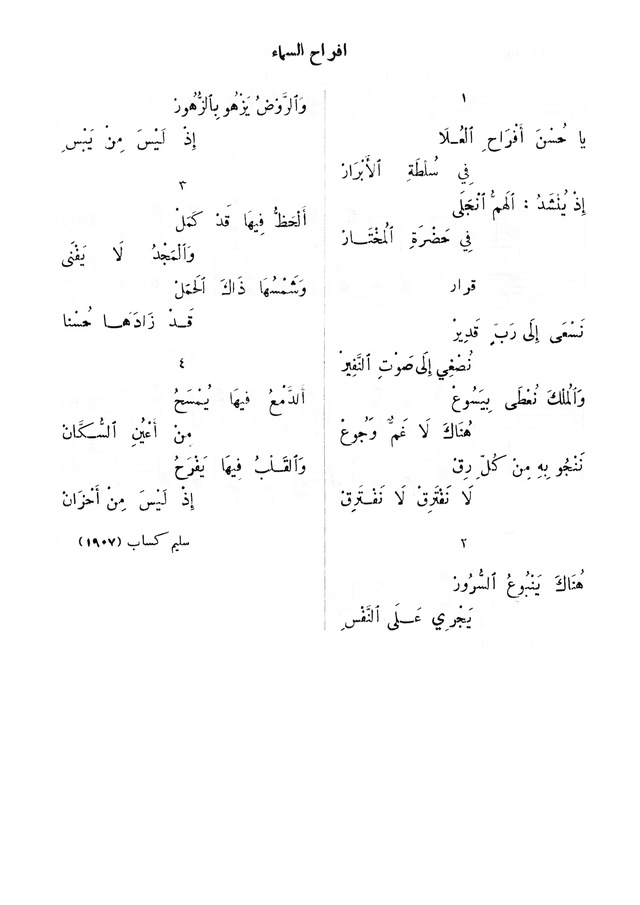 افراح السماء
١
يا حُسْنَ أَفْرَاحِ ٱلْعُـلَا
فِي سُلْطَةِ ٱلْأَبْرَارْ
إِذْ يُنْشَدُ : ٱلْهَمُّ ٱنْجَلَى
فِي حَضْرَةِ ٱلْمُخْتَـارْ
قرار
نَسْعَى إِلَى رَبٍّ قَدِيرْ
نُصْغِي إِلَى صَوْتِ ٱلنَّفِيرْ
وَٱلْمُلْكَ نُعْطَى بِيَسُوعْ
هُنَاكَ لَا غَمٌّ وَجُوعْ
نَنْجُو بِهِ مِنْ كُلِّ رِقّْ
لَا نَفْتَرِقْ لَا نَفْـتَرِقْ
٢
هُنَاكَ يَنْبُوعُ ٱلسُّرُورْ
يَجْرِي عَـلَى ٱلنَّفْسِ
وَٱلرَّوْضُ يَزْهُو بِٱلزُّهُورْ
إِذْ لَيْسَ مِنْ يَبْسِ
٣
أَلْحَظُّ فِيهَا قَدْ كَمَلْ
وَٱلْمَجْدُ لَا يَفْنَى
وَشَمْسُهَا ذَاكَ ٱلْحَمَلْ
قَـدْ زَادَهَـا حُسْنا
٤
أَلدَّمْعُ فِيهَا يُمْسَحُ
مِنْ أَعْيُنِ ٱلسُّـكَّانْ
وَٱلْقَلْبُ فِيهَا يَفْرَحُ
إِذْ لَيْسَ مِنْ أَحْزَانْ
سليم كساب (١٩٠٧)